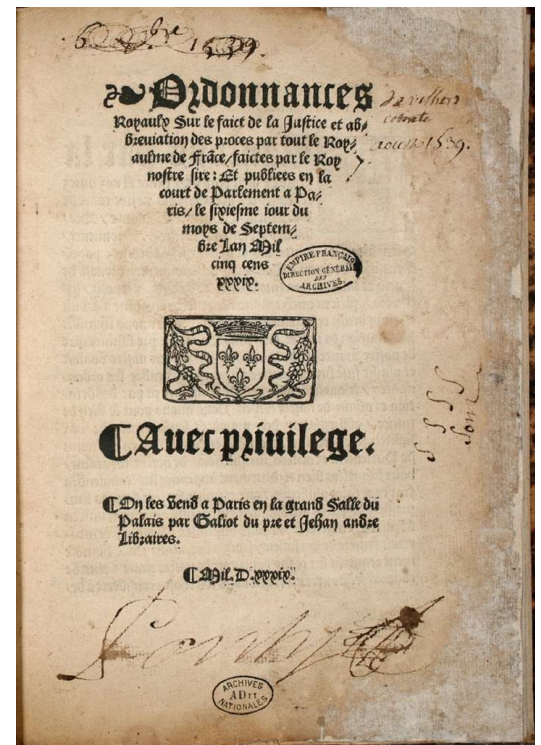 6 bre 1539.
Ordonnances
Royaulx Sur le faict de la Justice et ab⸗
breviation des proces par tout le Roy⸗
aulme de Frāce/faictes par le Roy
nostre sire: Et publiees en la
court de Parlement a Pa⸗
ris/le sixiesme iour du
moys de Septem⸗
bre Lan Mil
cinq cens
xxxix.
de villers
coterets
aoust 1539.
EMPIRE FRANÇAIS
DIRECTION GÉNÉRALE
DES
ARCHIVES.
¶Auec priuilege.
¶On les vend a Paris en la grand Salle du
Palais par Galiot du pre et Jehan andre
Libraires.
¶Mil.D.xxxix.
ARCHIVES
AD II
NATIONALES